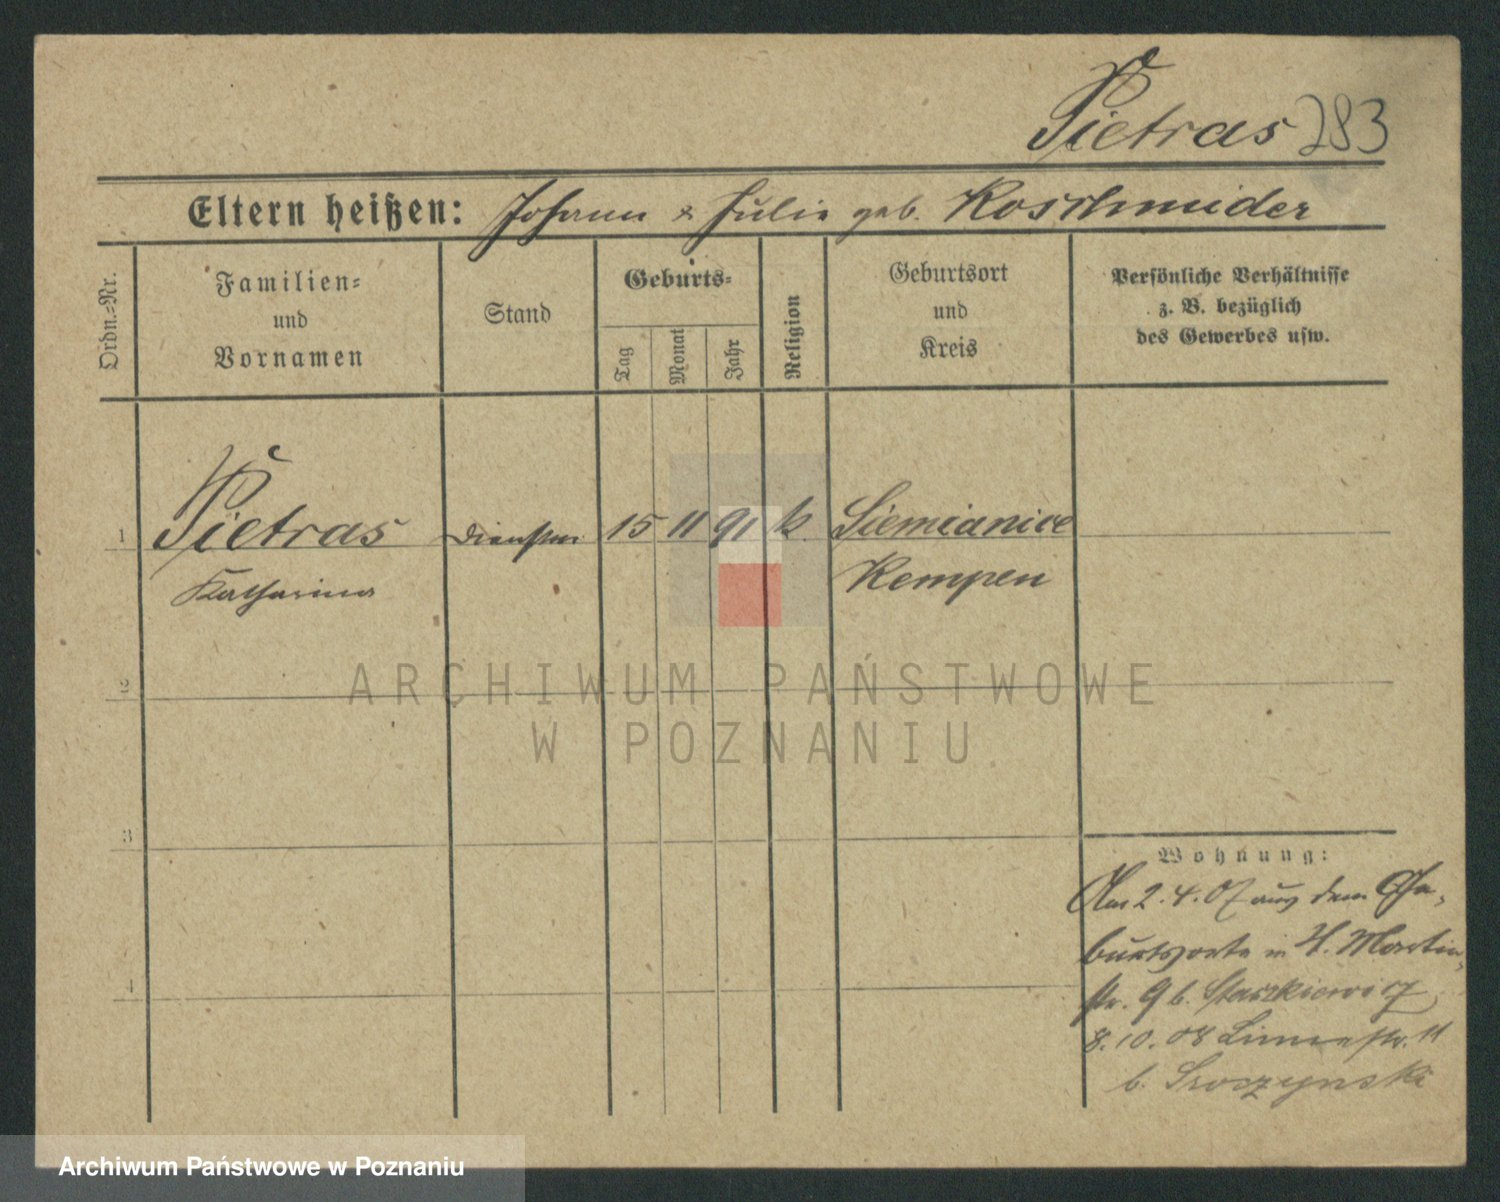 Pietras 283
Eltern heißen: Johann & Julie geb. Koschmider
Ordn.-Nr.
Familien-
und
Vornamen
Stand
Geburts-
Tag
Monat
Jahr
Religion
Geburtsort
und
Kreis
Persönliche Verhältnisse
z. B. bezüglich
des Gewerbes usw.
1 Pietras Dienstm. 15 11 91 k. Siemianice
Katharina Kempen
2
3
4
Wohnung:
Am 2.4.07 aus dem Ge-
burtsorte in St. Martin-
str. 9 b. Staszkiewicz
8.10.08 str. 11
b. Sroszynski
ARCHIWUM PAŃSTWOWE
W POZNANIU
Archiwum Państwowe w Poznaniu